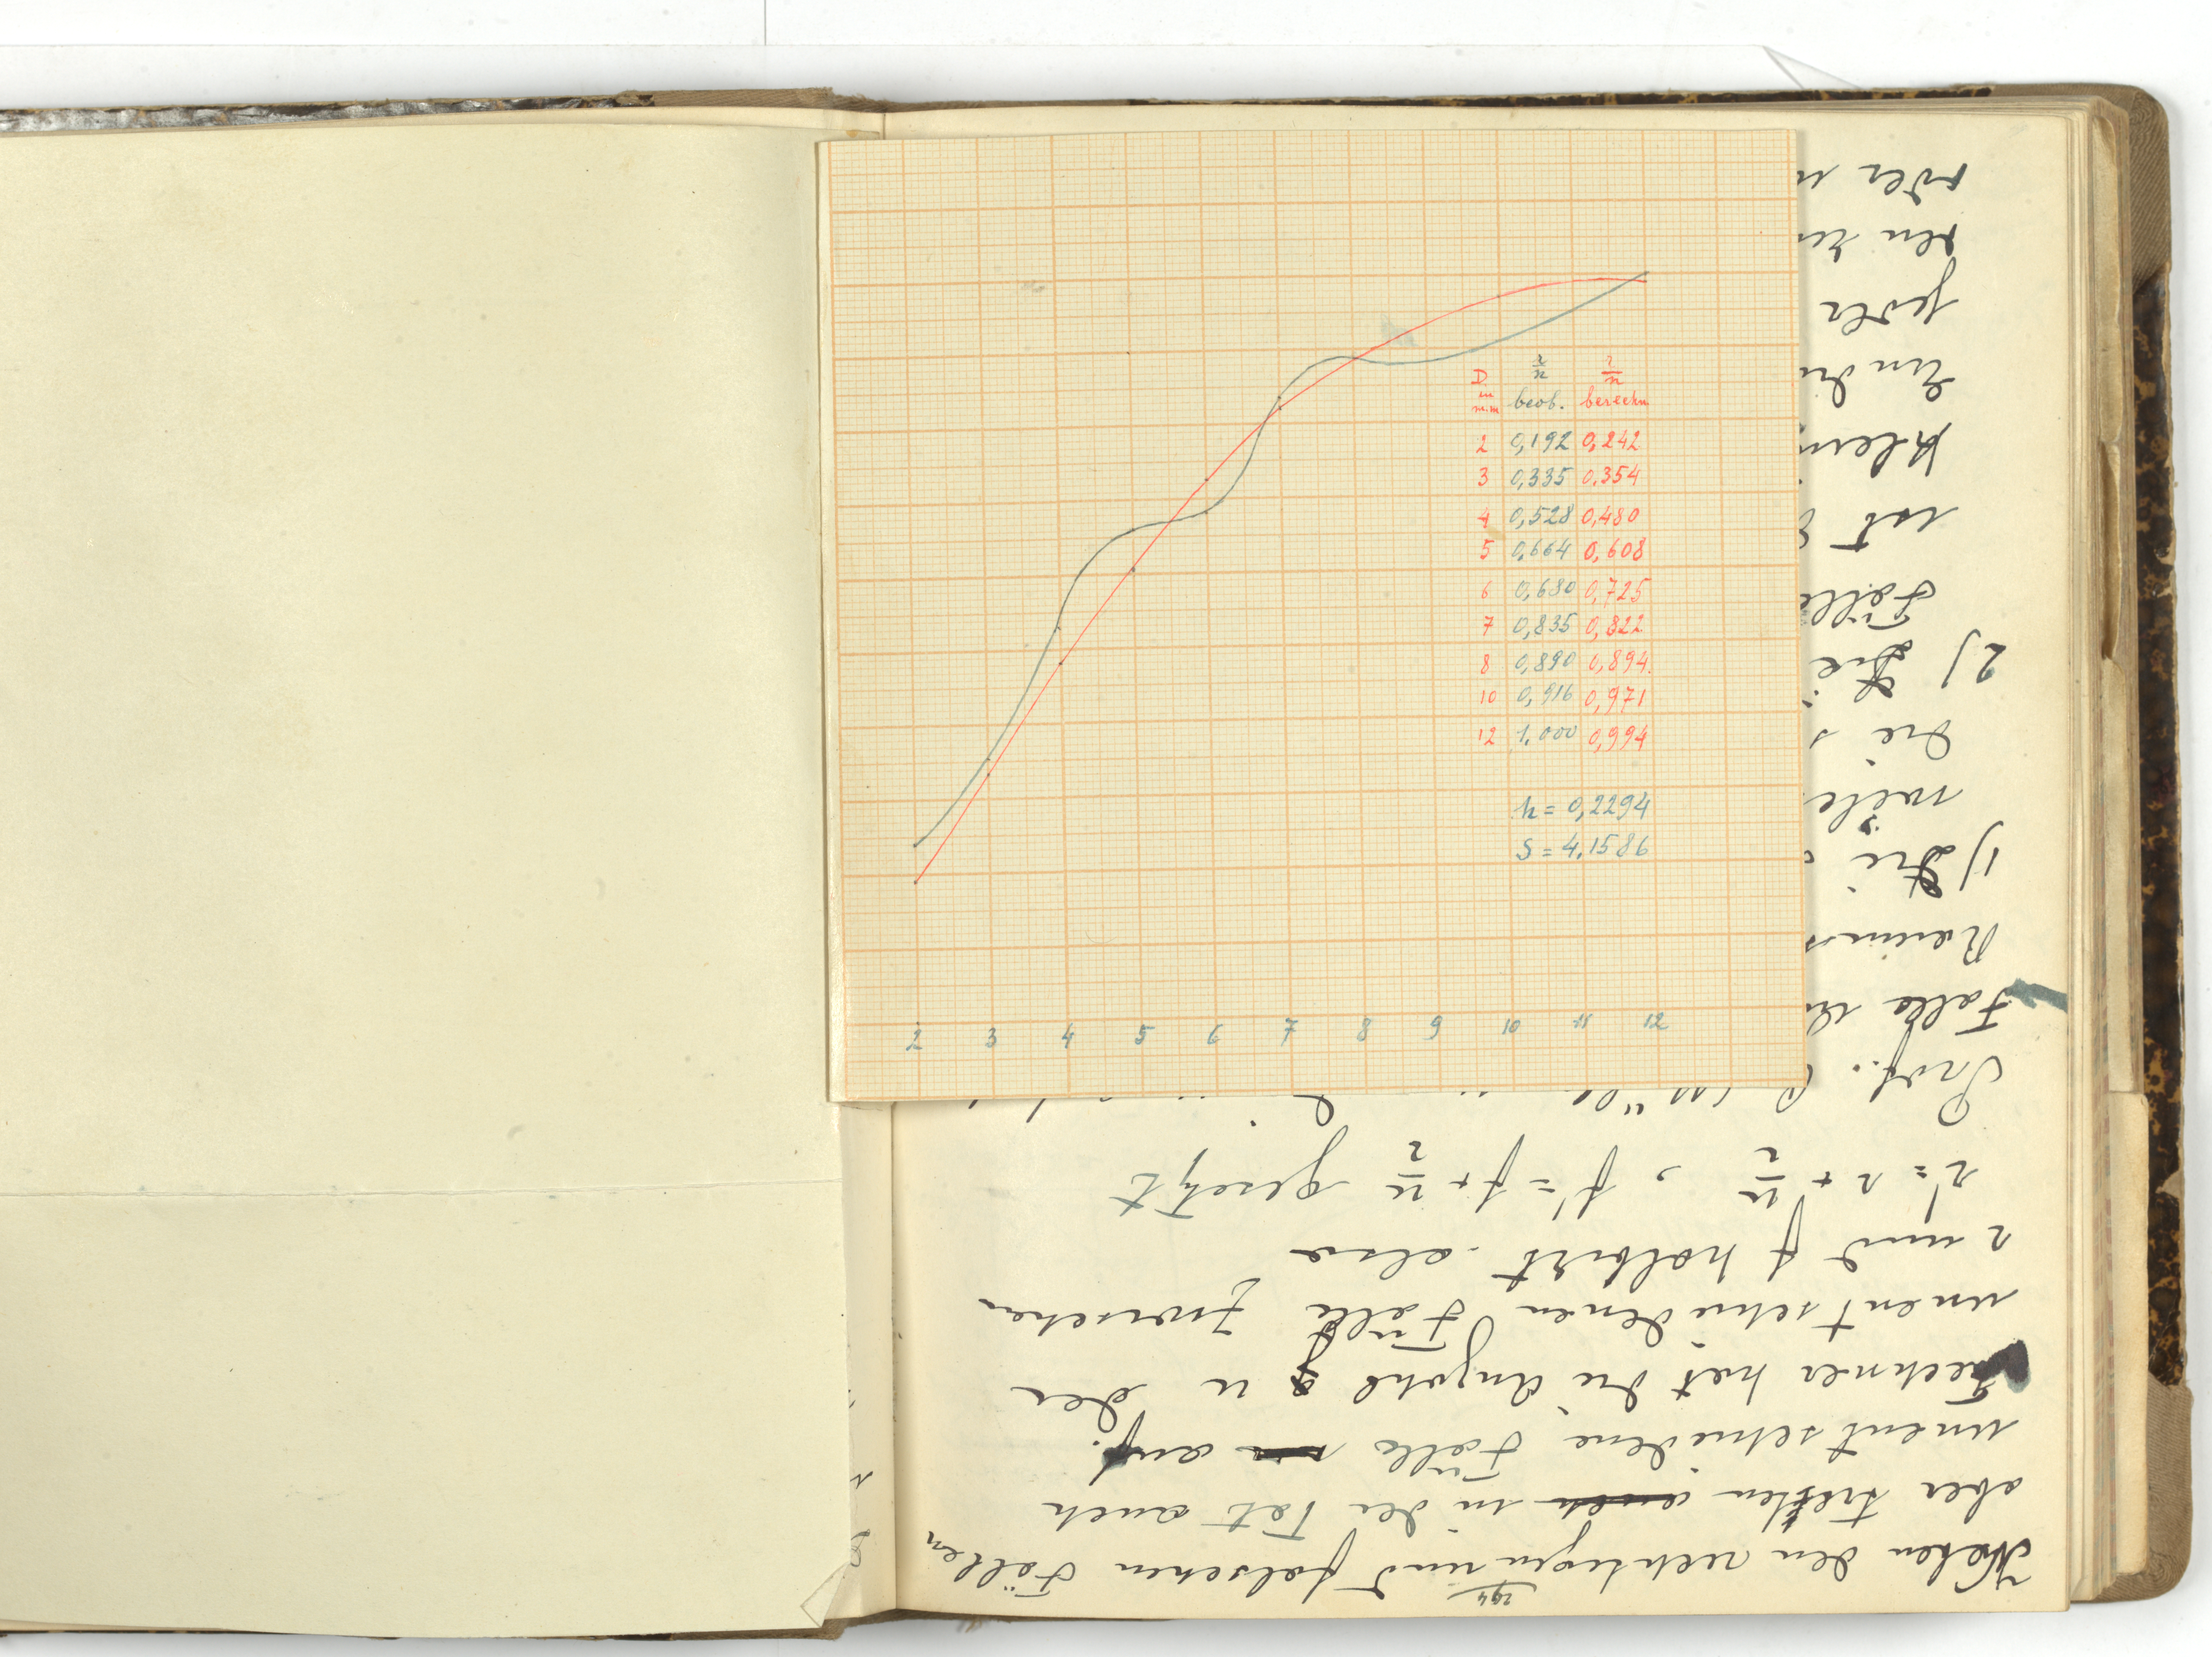 D. in m.m	r/n beob.	r/n berechn.
2	0,192	0,242
3	0,335	0.354
4	0,528	0,480
5	0,664	0,608
6	0,680	0,725
7	0,835	0,822
8	0,890	0,894
10	0,916	0,971
12	1,000	0,994
h = 0,2294
S = 4,1586
2 3 4 5 6 7 8 9 10 11 12
194
Neben den richtigen und falschen Fällen
aber treten auch in der Tat auch
unentschiedene Fälle auf.
Fechner hat die Anzahl u der
unentschiedenen Fälle zwischen
r und f halbirt also
r' = r + u/2, f' = f + u/2 gesetzt
Prof.
Falle
1) Die
die
2) Die
Fälle
ist
jeder
den
oder